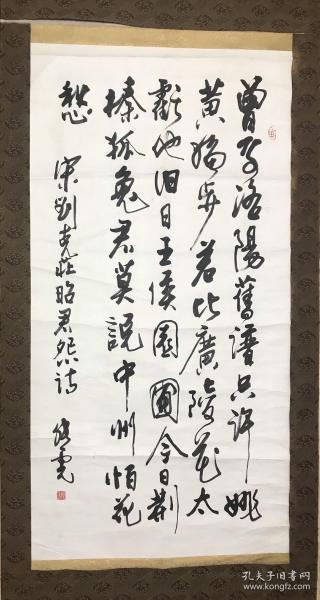 曾看洛陽舊譜只許姚
黃獨步若比廣陵花太
虧他旧日王侯園圃今日荆
榛狐兔君莫說中州怕花
愁
宋劉克莊昭君怨詩
孔夫子旧书网